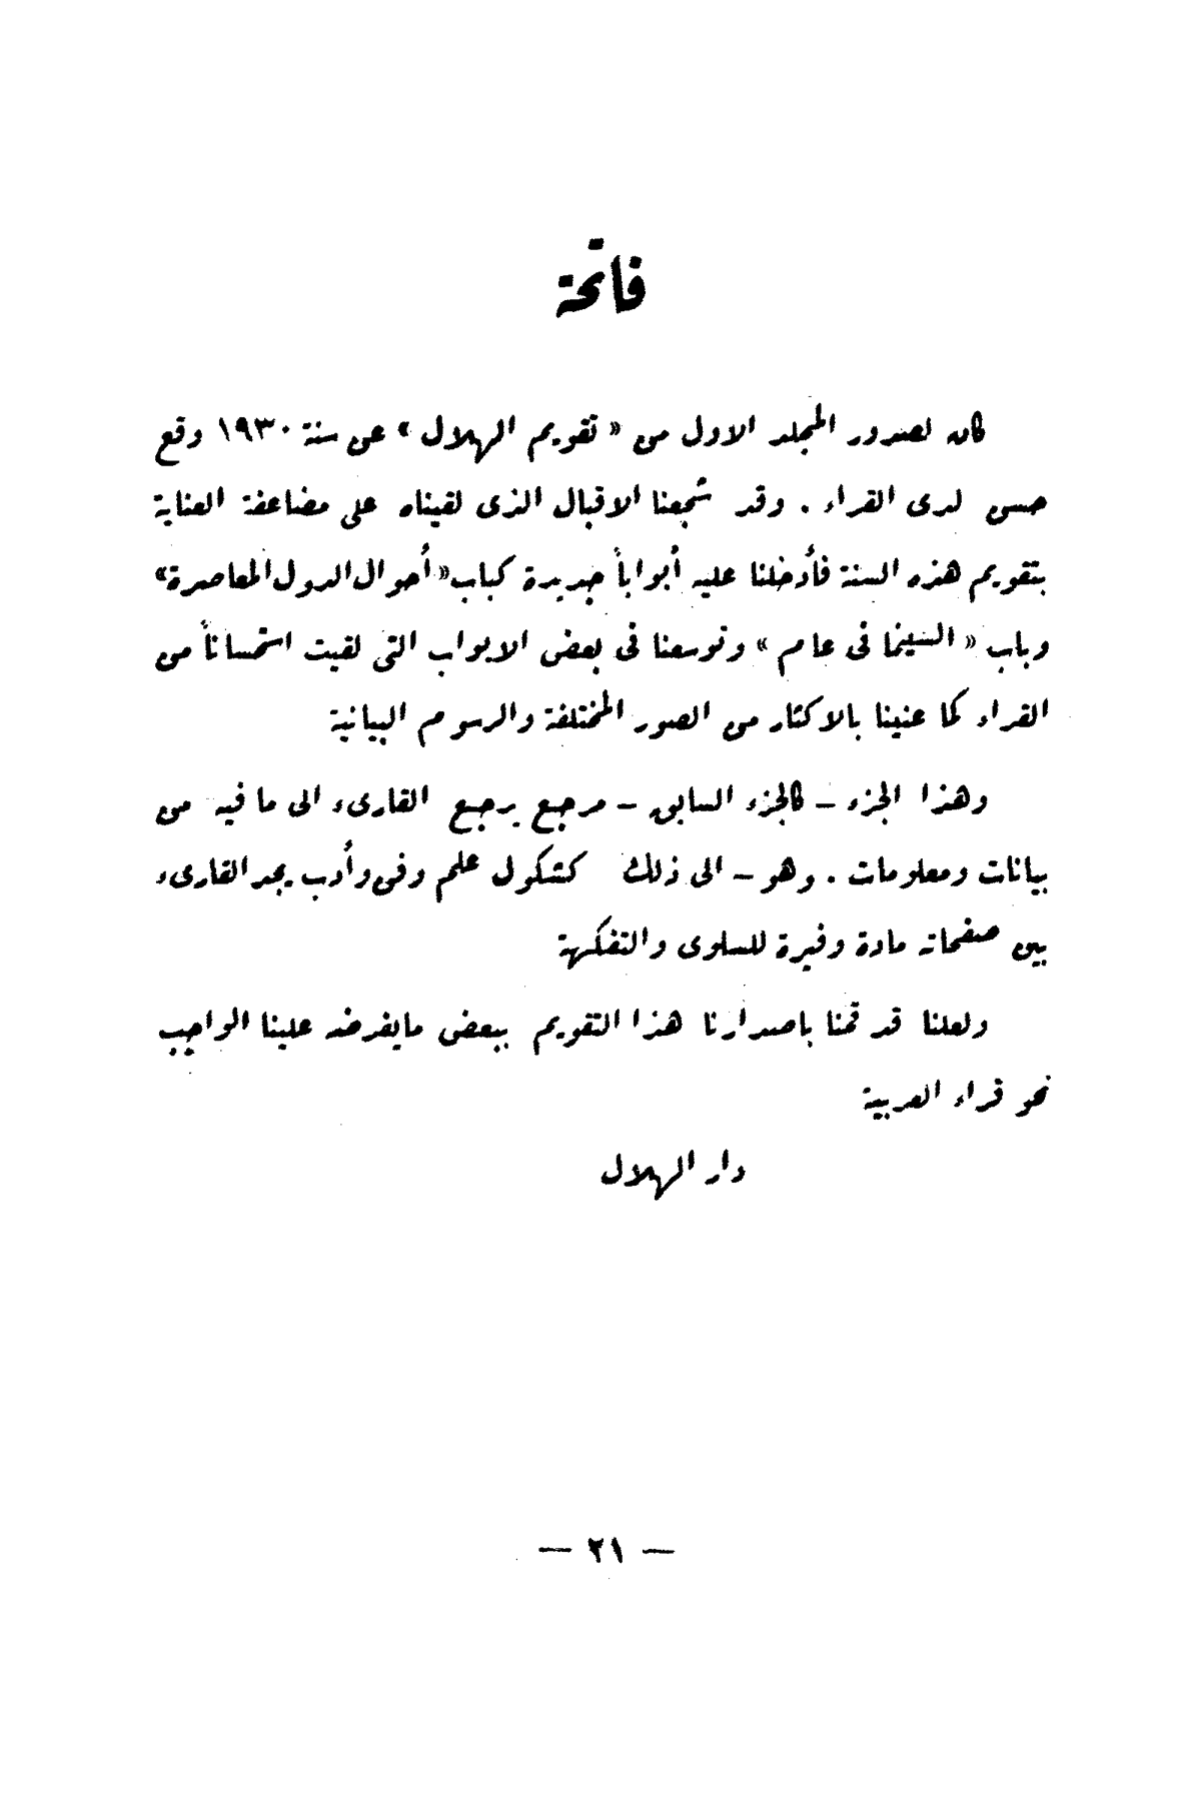 فاتحة
كان لصدور المجلد الاول من « تقويم الهلال » عن سنة ١٩٣٠ وقع
حسن لدى القراء . وقد شجعنا الاقبال الذى لقيناه على مضاعفة العناية
بتقويم هذه السنة فأدخلنا عليه أبواباً جديدة كباب « أحوال الدول المعاصرة »
وباب « السينما فى عام » وتوسعنا فى بعض الابواب التى لقيت استحساناً من
القراء كما عنينا بالاكثار من الصور المختلفة والرسوم البيانية
وهذا الجزء – كالجزء السابق – مرجع يرجع القارىء الى ما فيه من
بيانات ومعلومات . وهو – الى ذلك كشكول علم وفن وأدب يجد القارىء
بين صفحاته مادة وفيرة للسلوى والتفكهة
ولعلنا قد قمنا باصدارنا هذا التقويم ببعض مايفرضه علينا الواجب
نحو قراء العربية
دار الهلال
— ٢١ —